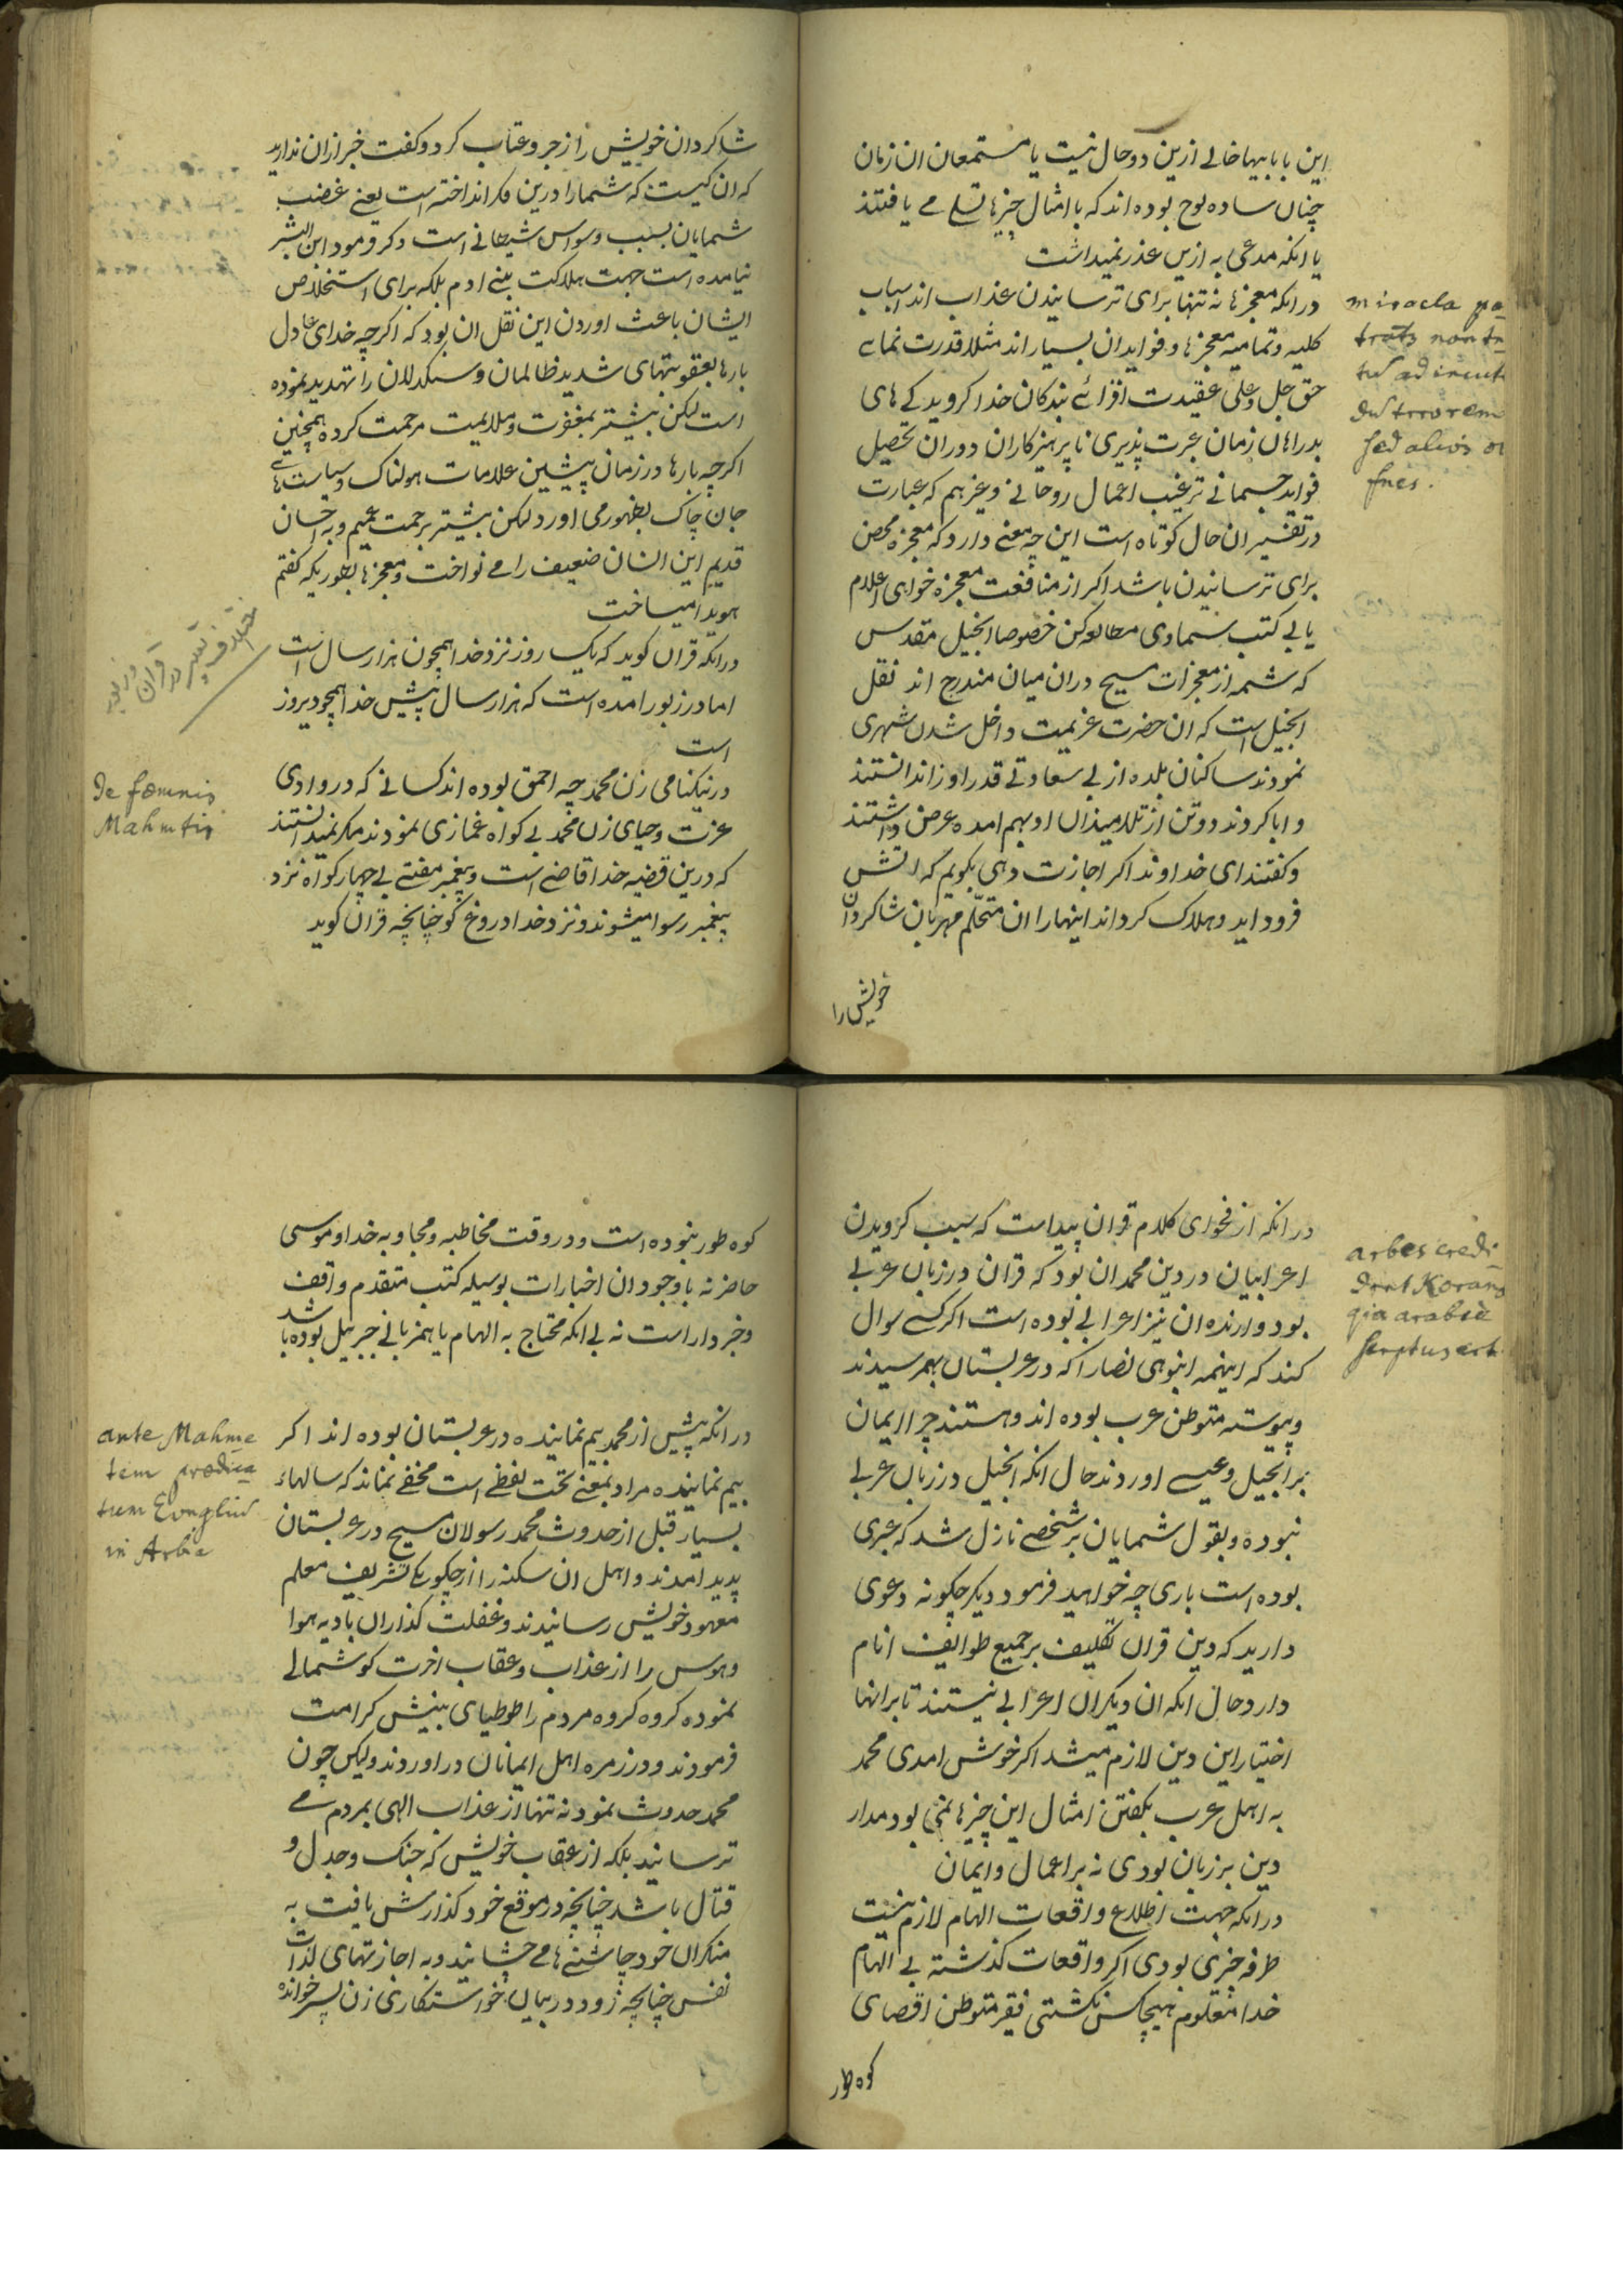 این بابابیها خالی ازین دو حال نیست یا مستمعان ان زمان
چنان ساده لوح بوده اند که با امثال چیزها تسلی می یافتند
یا انکه مدعی به ازین عذر نمیداشت
در انکه معجزها نه تنها برای ترسانیدن عذاب اند اسباب
کلیه و تمامیه معجزها و فواید ان بسیار اند مثلا قدرت نمایی
حق جل و علی عقیدت افزائی بندکان خدا کرویدکی های
بدراهان زمان عبرت پذیری ناپرهیزکاران دوران تحصیل
فواید جسمانی ترغیب اعمال روحانی وغیرهم که عبارت
در تفسیر ان حال کوتاه است این چه معنی دارد که معجزه محض
برای ترسانیدن باشد اکر از منافعت معجزه خواهی اعلام
یابی کتب سماوی مطالعه کن خصوصا انجیل مقدس
که شمه از معجزات مسیح دران میان مندرج اند نقل
انجیل است که ان حضرت عزیمت داخل شدن شهری
نمودند ساکنان بلده از بی سعادتی قدر اورا ندانستند
و ابا کردند دوتن از تلامیذان او بهم امده عرض داشتند
و کفتند ای خداوند اکر اجازت دهی بکویم که اتش
فرود اید و هلاک کرداند اینهارا ان متحلّم مهربان شاکردان
خویش را
miracla pa
tratz non tn
tu ad incut
du trrorem
sed alios
fnes.
شاکردان خویش را زجر و عتاب کرد و کفت خبر ازان ندارید
که ان کیست که شمارا درین فکر انداخته است یعنی غضب
شمایان بسبب وسواس شیطانی است دکر فرمود ابن البشر
نیامده است جهت هلاکت بنی ادم بلکه برای استخلاص
ایشان باعث اوردن این نقل ان بود که اکرچه خدای عادل
بارها بعقوبتهای شدید ظالمان و سنکدلان را تهدید نموده
است لیکن بیشتر بمغفرت و ملایمت مرحمت کرده همچنین
اکرچه بارها در زمان پیشین علامات هولناک و سیاستهای
جان چاک بظهور می اورد لیکن بیشتر برحمت عمیم و به احسان
قدیم این انسان ضعیف را می نواخت و معجزها بطوریکه کفتم
هویدا میساخت
در انکه قران کوید که یک روز نزد خدا همچون هزار سال است
اما در زبور امده است که هزار سال پیش خدا همچو دیروز
است
در نیکنامی زن محمد چه احمق بوده اند کسانی که در وادی
عزت و حیای زن محمد بی کواه غمازی نمودند مکر نمیدانستند
که درین قضیه خدا قاضی است و پیغمبر مفتی بی چهار کواه نزد
پیغمبر رسوا میشوند و نزد خدا دروغ کو چنانچه قران کوید
De fœmnis
Mahmtis
در انکه از فحوای کلام قران پیداست که سبب کرویدن
اعرابیان در دین محمد ان بود که قران در زبان عربی
بود و ارنده ان نیز اعرابی بوده است اکر کسی سوال
کند که اینهمه انبوهی نصارا که در عربستان بهمرسیدند
و پیوسته متوطن عرب بوده اند و هستند چرا ایمان
بر انجیل و عیسی اوردند حال انکه انجیل در زبان عربی
نبوده و بقول شمایان بر شخصی نازل شد که عبری
بوده است باری چه خواهید فرمود دیکر چکونه دعوی
دارید که دین قران تکلیف بر جمیع طوایف انام
دارد حال انکه ان دیکران اعرابی نیستند تا بر انها
اختیار این دین لازم میشد اکر خوش امدی محمد
به اهل عرب بکفتن امثال این چیزها نمی بود مدار
دین بر زبان بودی نه بر اعمال و ایمان
در انکه جهت اطلاع واقعات الهام لازم نیست
طرفه خبری بودی اکر واقعات کذشته بی الهام
خدا معلومه هیچکس نکشتی فقیر متوطن اقصای
کوه طور
arbes credi
drnt Korano
qia arabice
scrptus est
کوه طور نبوده است و در وقت مخاطبه و مجاوبه خدا و موسی
حاضر نه باوجود ان اخبارات بوسیله کتب متقدم واقف
و خبردار است نه بی انکه محتاج به الهام یا همزبانی جبریل بوده باشد
در انکه پیش از محمد بیم نماینده در عربستان بوده اند اکر
بیم نماینده مراد بمعنی تحت لفظی است مخفی نماند که سالهاء
بسیار قبل از حدوث محمد رسولان مسیح در عربستان
پدید امدند و اهل ان سکنه را از چکونکی تشریف معلم
معهود خویش رسانیدند و غفلت کذاران بادیه هوا
و هوس را از عذاب و عقاب اخرت کوشمالی
نموده کروه کروه مردم را طوطیای بینش کرامت
فرمودند و در زمره اهل ایمانان در اوردند ولیکن چون
محمد حدوث نمود نه تنها از عذاب الهی بمردم می
ترسانید بلکه از عقاب خویش که جنک و جدل و
قتال باشد چنانچه در موقع خود کذارش یافت به
منکران خود چاشنی ها می چشانید و به اجازتهای لذات
نفس چنانچه زود در بیان خواستکاری زن پسر خوانده
ante Mahme
tem prædica
tum Evnglium
in Arbia